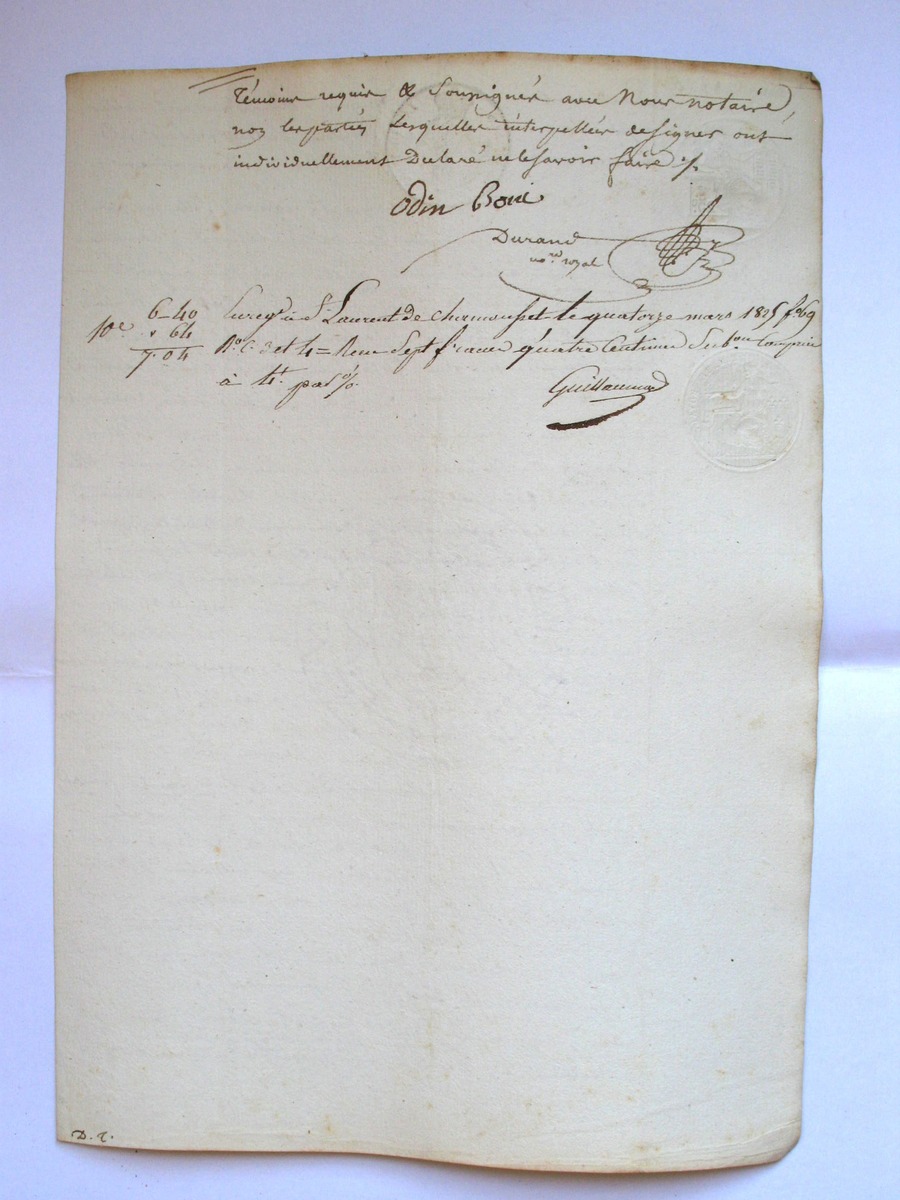 témoins requis & soussignés avec Nous notaire
non les parties Lesquelles interpellées de signer ont
individuellement Déclaré ne le savoir faire ./.
odin Boui
Durand
no.re royal
6-40
10e " 64
7-04
Enregé à St Laurent de chamousset le quatorze mars 1825 fo 69
Ro C. 3 et 4 = Reçu Sept francs quatre Centimes Subvon Comprise
à
Guillaumod
D. T.